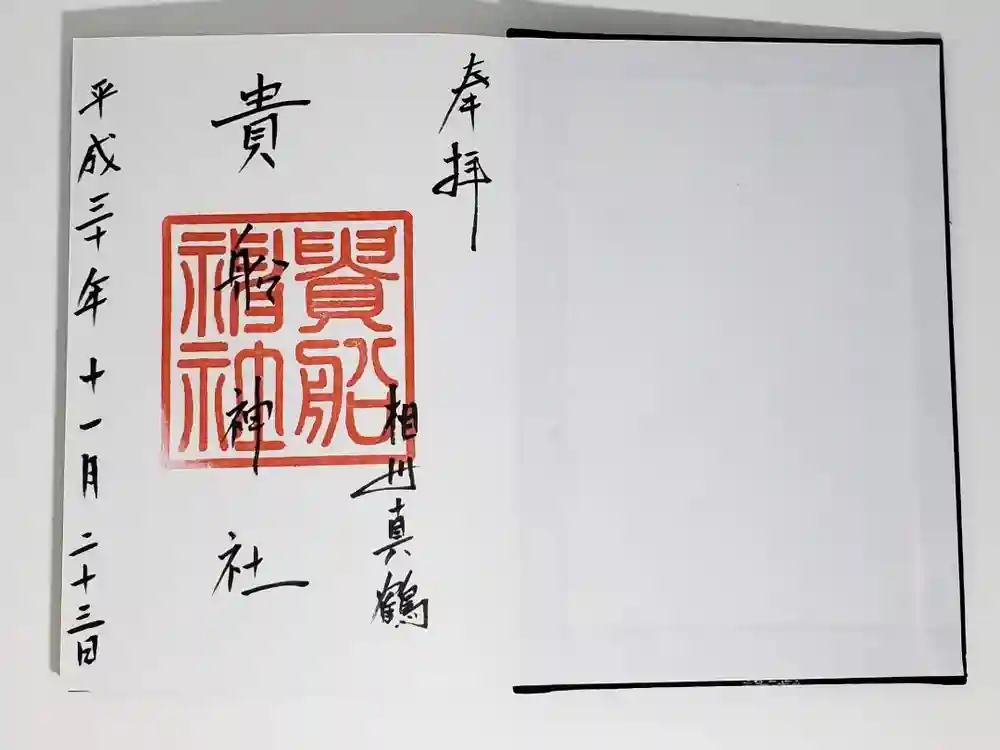 奉拝
相州真鶴
貴船神社
貴船
神社
平成三十年十一月二十三日